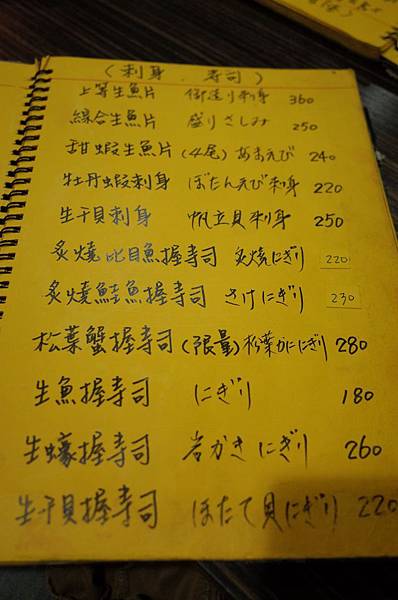 (刺身．寿司)
上等生魚片 御造り刺身 360
綜合生魚片 盛りさしみ 250
甜蝦生魚片(4尾) あまえび 240
牡丹蝦刺身 ぼたんえび刺身 220
生干貝刺身 帆立貝刺身 250
炙燒比目魚握寿司 炙燒にぎり 220
炙燒鮭魚握寿司 さけにぎり 230
松葉蟹握寿司(限量)松葉かににぎり 280
生魚握寿司 にぎり 180
生蠔握寿司 岩かきにぎり 260
生干貝握寿司 ほたて貝にぎり 220